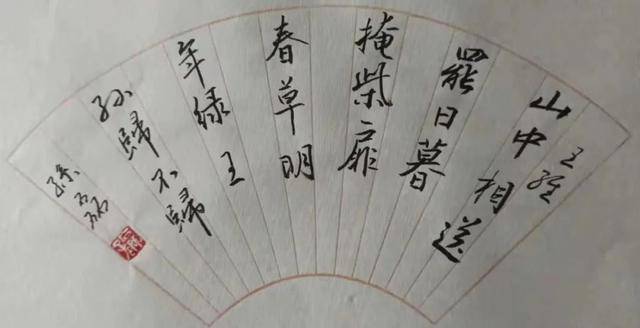 王维
山中相送
罷日暮
掩柴扉
春草明
年绿王
孙歸不歸